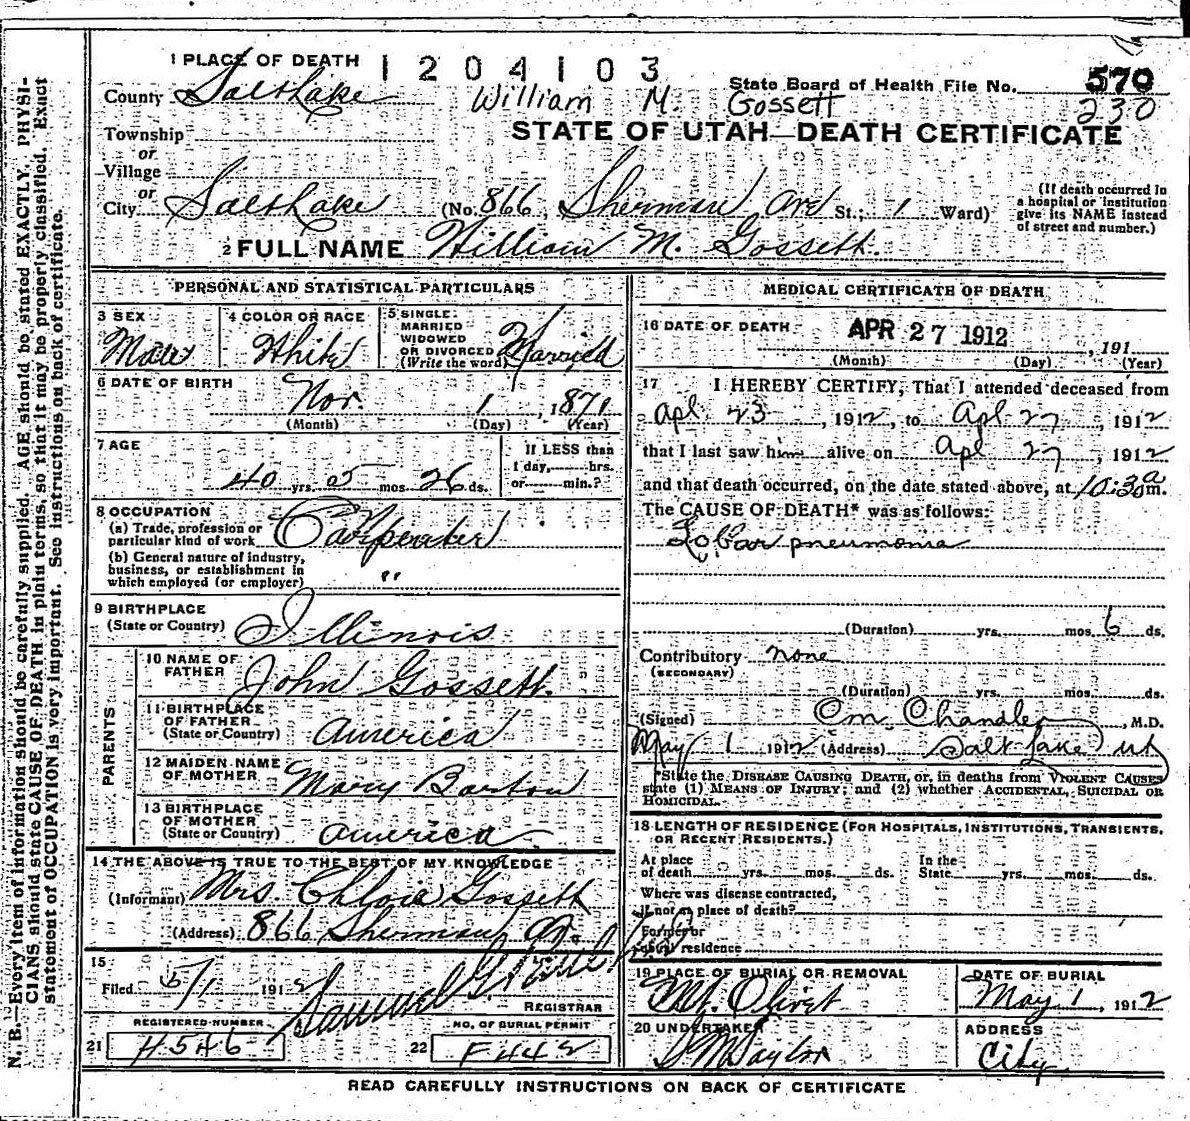 N. B.—Every item of information should be carefully supplied. AGE should be stated EXACTLY. PHYSI-
CIANS should state CAUSE OF DEATH in plain terms, so that it may be properly classified. Exact
statement of OCCUPATION is very important. See instructions on back of certificate.
1 PLACE OF DEATH 1204103
State Board of Health File No. 570
County Salt Lake William M. Gossett 230
STATE OF UTAH—DEATH CERTIFICATE
Township
or
Village
or
City Salt Lake (No. 866, Sherman Ave St.; 1 Ward)
(If death occurred in
a hospital or institution
give its NAME instead
of street and number.)
2 FULL NAME William M. Gossett.
PERSONAL AND STATISTICAL PARTICULARS
3 SEX
Male
4 COLOR OR RACE
White
5 SINGLE
MARRIED
WIDOWED
OR DIVORCED
(Write the word)
Married
6 DATE OF BIRTH
Nov. 1, 1871
(Month) (Day) (Year)
7 AGE
40 yrs. 5 mos. 26 ds.
If LESS than
1 day, hrs.
or min.?
8 OCCUPATION
(a) Trade, profession or
particular kind of work Carpenter
(b) General nature of industry,
business, or establishment in
which employed (or employer) "
9 BIRTHPLACE
(State or Country) Illinois
PARENTS
10 NAME OF
FATHER John Gossett.
11 BIRTHPLACE
OF FATHER
(State or Country) America
12 MAIDEN NAME
OF MOTHER Mary Barton
13 BIRTHPLACE
OF MOTHER
(State or Country) America
14 THE ABOVE IS TRUE TO THE BEST OF MY KNOWLEDGE
(Informant) Mrs. Chloie Gossett
(Address) 866 Sherman Av.
15
Filed 5/1 1912 Samuel G.
REGISTRAR
REGISTERED NUMBER
21 H546
NO. OF BURIAL PERMIT
22 F442
MEDICAL CERTIFICATE OF DEATH
16 DATE OF DEATH APR 27 1912, 191
(Month) (Day) (Year)
17 I HEREBY CERTIFY, That I attended deceased from
Apl 23, 1912, to Apl 27, 1912
that I last saw him alive on Apl 27, 1912
and that death occurred, on the date stated above, at 10:30 a m.
The CAUSE OF DEATH* was as follows:
Lobar pneumonia
(Duration) yrs. mos. 6 ds.
Contributory none
(SECONDARY)
(Duration) yrs. mos. ds.
(Signed) O m Chandler, M.D.
May 1 1912 (Address) Salt Lake Ut
*State the DISEASE CAUSING DEATH, or, in deaths from VIOLENT CAUSES
state (1) MEANS OF INJURY; and (2) whether ACCIDENTAL, SUICIDAL OR
HOMICIDAL.
18 LENGTH OF RESIDENCE (FOR HOSPITALS, INSTITUTIONS, TRANSIENTS,
OR RECENT RESIDENTS.)
At place
of death yrs. mos. ds.
In the
State yrs. mos. ds.
Where was disease contracted,
if not in place of death?
Former or
usual residence
19 PLACE OF BURIAL OR REMOVAL
Mt. Olivet
DATE OF BURIAL
May 1, 1912
20 UNDERTAKER
S M Taylor
ADDRESS
City
READ CAREFULLY INSTRUCTIONS ON BACK OF CERTIFICATE